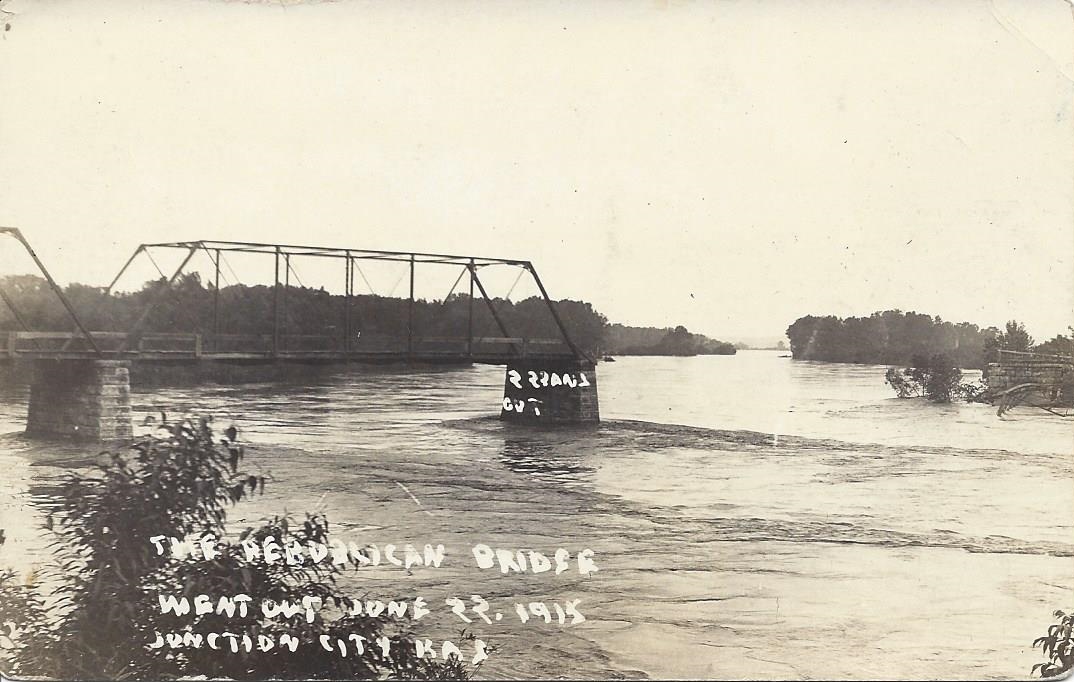 2 SPANS
OUT
THE REPUBLICAN BRIDGE
WENT OUT JUNE 22. 1915
JUNCTION CITY KAS